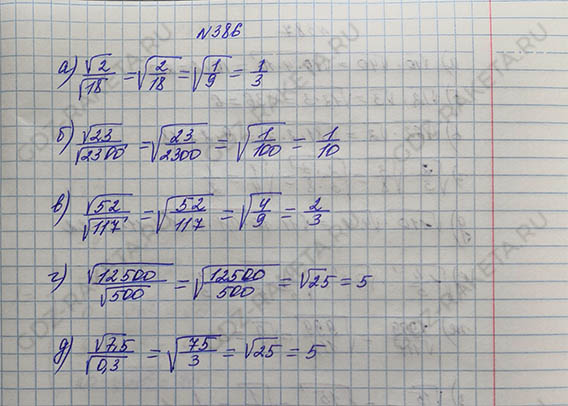 №386
а) √2/√18 = √(2/18) = √(1/9) = 1/3
б) √23/√2300 = √(23/2300) = √(1/100) = 1/10
в) √52/√117 = √(52/117) = √(4/9) = 2/3
г) √12500/√500 = √(12500/500) = √25 = 5
д) √7,5/√0,3 = √(75/3) = √25 = 5
GDZ-RAKETA.RU